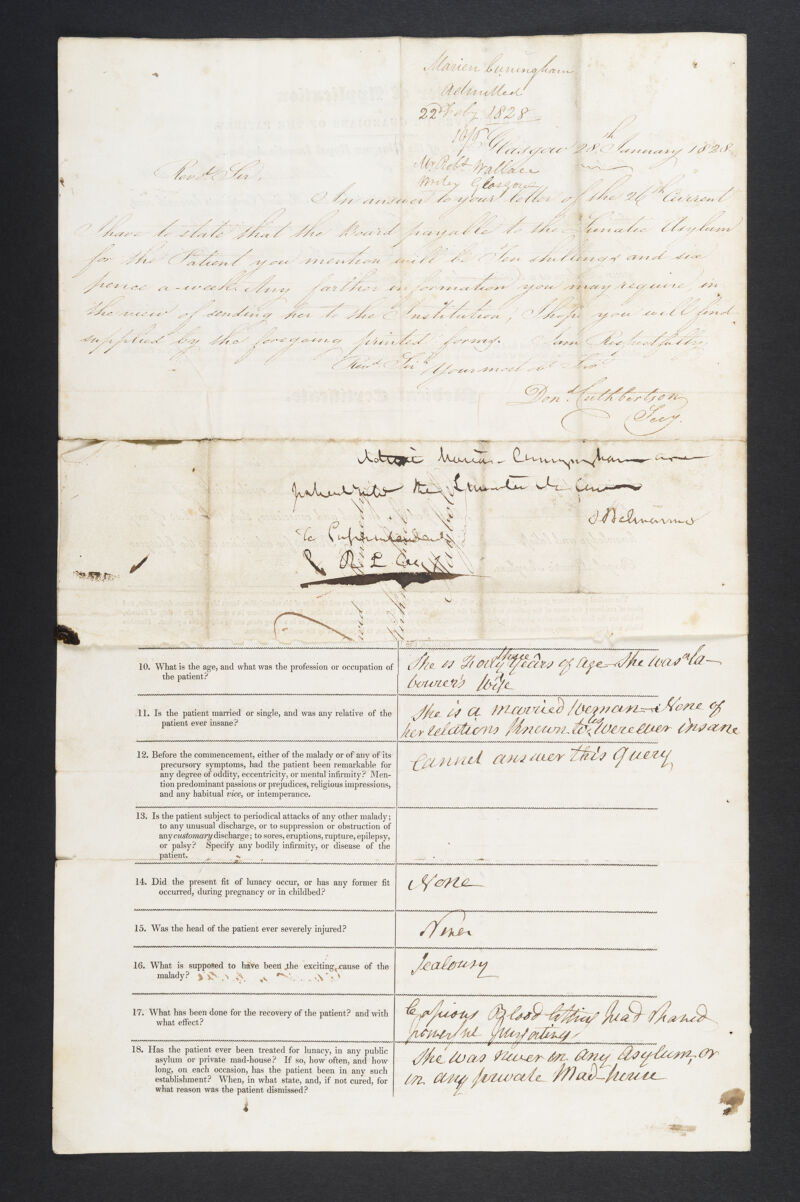 Marion Cuningham
Admitted
22d Feby 1828
Glasgow 28th January 1828
Mr Robt Wallace
Writer Glasgow
Revd. Sir,
In answer to your letter of the 26th Current
I have to state that the Board payable to the Lunatic Asylum
for the Patient you mention will be Ten shillings and six
pence a-week. Any farther information you may require, in
the view of sending her to the Institution, I hope you will find
supplied by the foregoing printed forms. I am Respectfully
Revd. Sir Your most ob Ser
Don. Cuthbertson
Secy.
Admit Marion Cunningham as a
patient into the
To Superintendent
R L
10. What is the age, and what was the profession or occupation of
the patient?
She is Forty three years of age She was a la-
bourer's Wife
11. Is the patient married or single, and was any relative of the
patient ever insane?
She is a married Woman - None of
her relations Known to us were ever insane
12. Before the commencement, either of the malady or of any of its
precursory symptoms, had the patient been remarkable for
any degree of oddity, eccentricity, or mental infirmity? Men-
tion predominant passions or prejudices, religious impressions,
and any habitual vice, or intemperance.
Cannot answer this Query
13. Is the patient subject to periodical attacks of any other malady;
to any unusual discharge, or to suppression or obstruction of
any customary discharge; to sores, eruptions, rupture, epilepsy,
or palsy? Specify any bodily infirmity, or disease of the
patient.
14. Did the present fit of lunacy occur, or has any former fit
occurred, during pregnancy or in childbed?
None
15. Was the head of the patient ever severely injured?
Never
16. What is supposed to have been the exciting cause of the
malady?
Jealousy
17. What has been done for the recovery of the patient? and with
what effect?
Copious Blood letting head shaved
powerful purgatives
18. Has the patient ever been treated for lunacy, in any public
asylum or private mad-house? If so, how often, and how
long, on each occasion, has the patient been in any such
establishment? When, in what state, and, if not cured, for
what reason was the patient dismissed?
She was never in any Asylum, or
in any private Mad-house